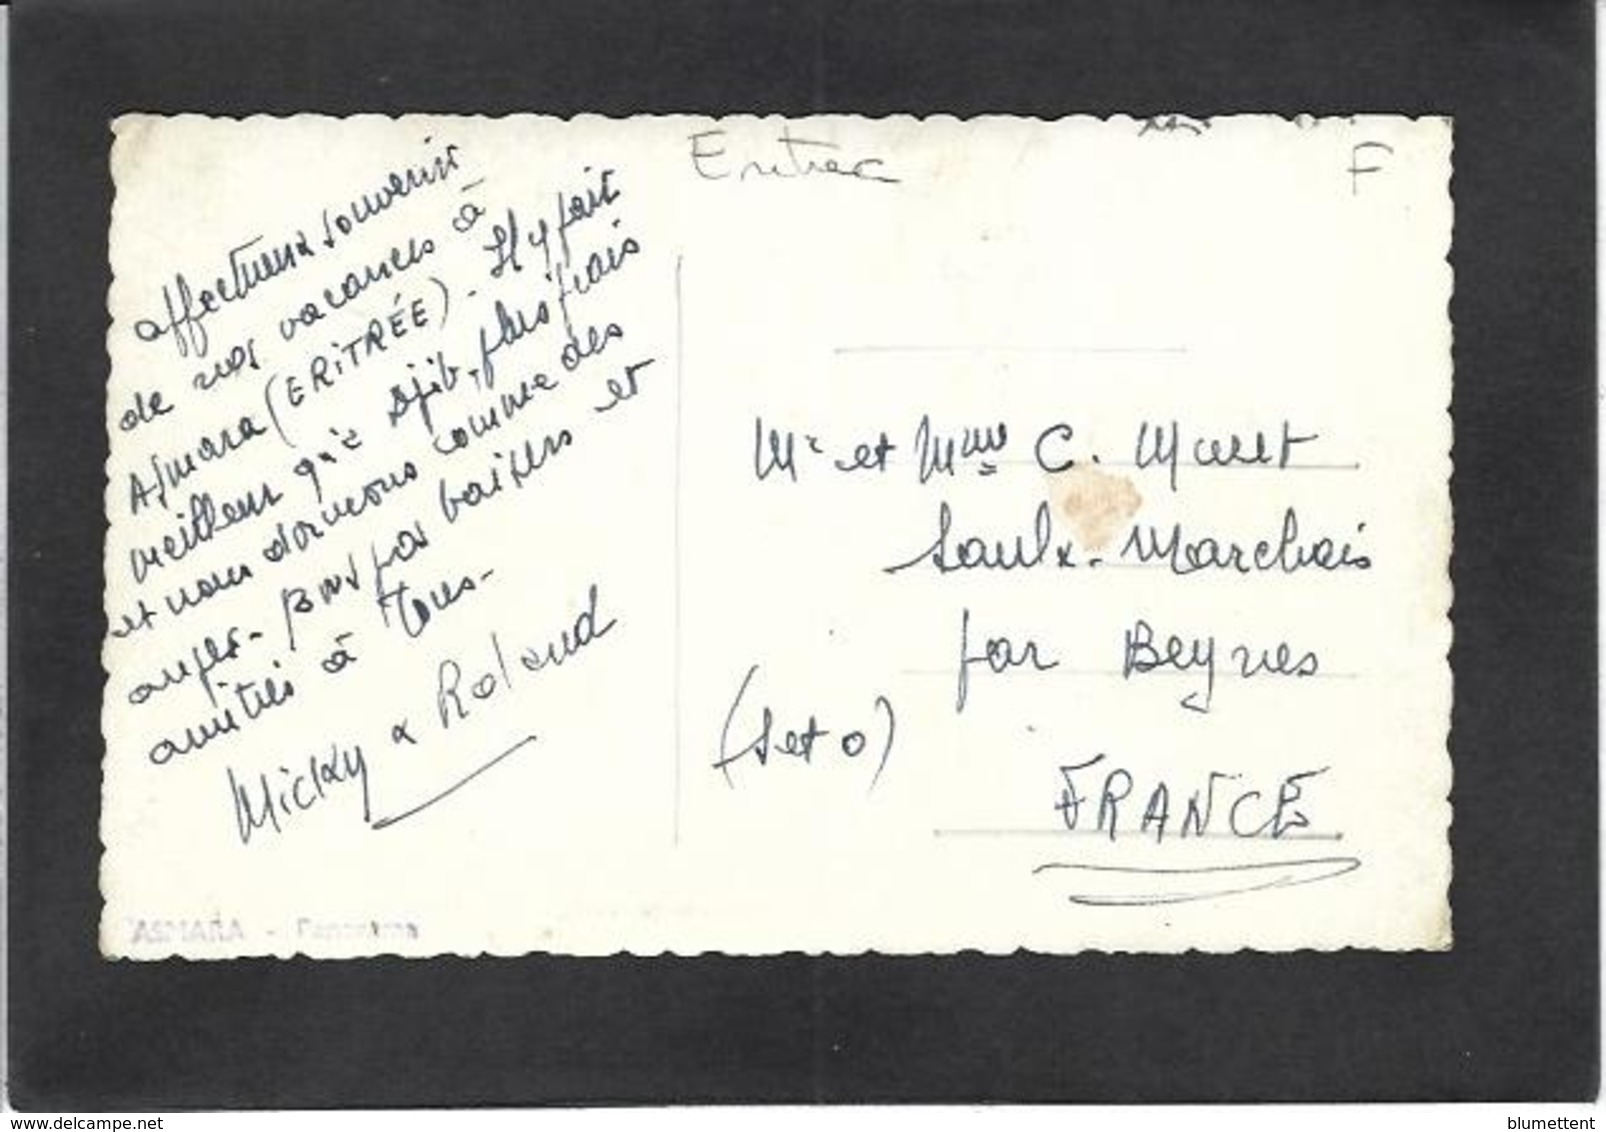 Eritrea
F
affectueux souvenir
de nos vacances à
Asmara (ERiTRÉE). Il y fait
meilleur qu'à Djib, plus frais
et nous dormons comme des
anges. Bons baisers et
amitiés à tous.
Micky & Roland
ASMARA - Panorama
Mr et Mme C.
Saulx-Marchais
par Beynes
(S et O)
FRANCE
www.delcampe.net
blumettent